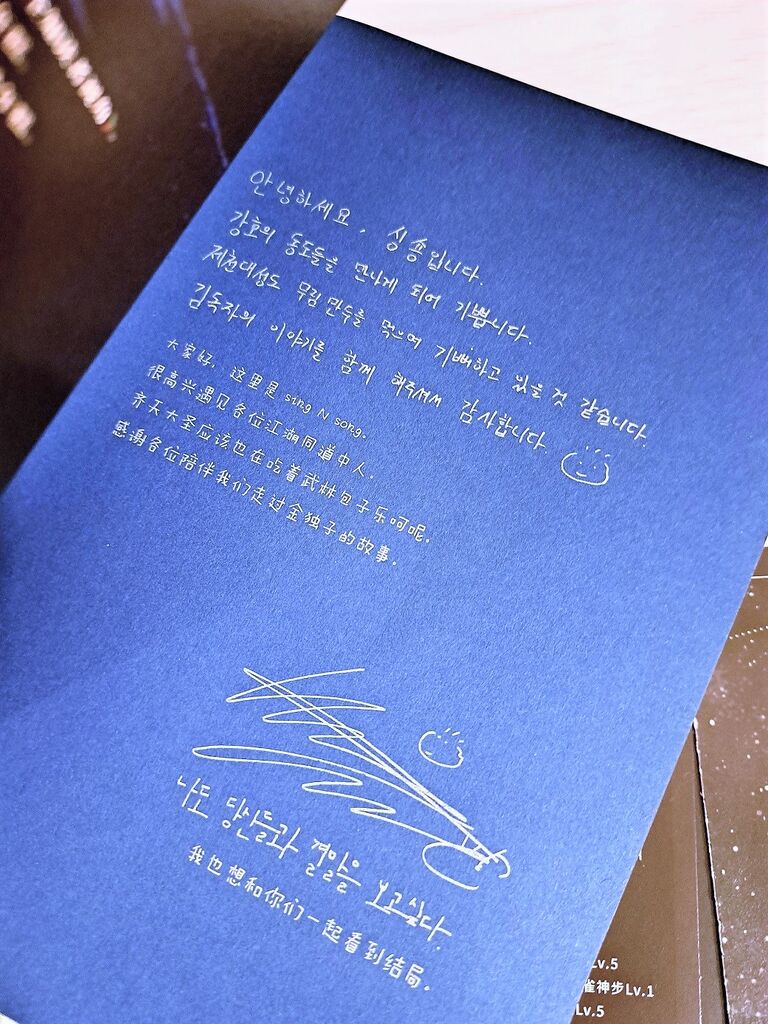 안녕하세요, 싱숑입니다.
강호의 동도들을 만나게 되어 기쁩니다.
제천대성도 무림만두를 먹으며 기뻐하고 있을 것 같습니다.
김독자의 이야기를 함께 해주셔서 감사합니다.
大家好，这里是 sing N song.
很高兴遇见各位江湖同道中人.
齐天大圣应该也在吃着武林包子乐呵呢.
感谢各位陪伴我们走过金独子的故事.
나도 당신들과 결말을 보고싶다.
我也想和你们一起看到结局.
Lv.5
雀神步Lv.1
Lv.5